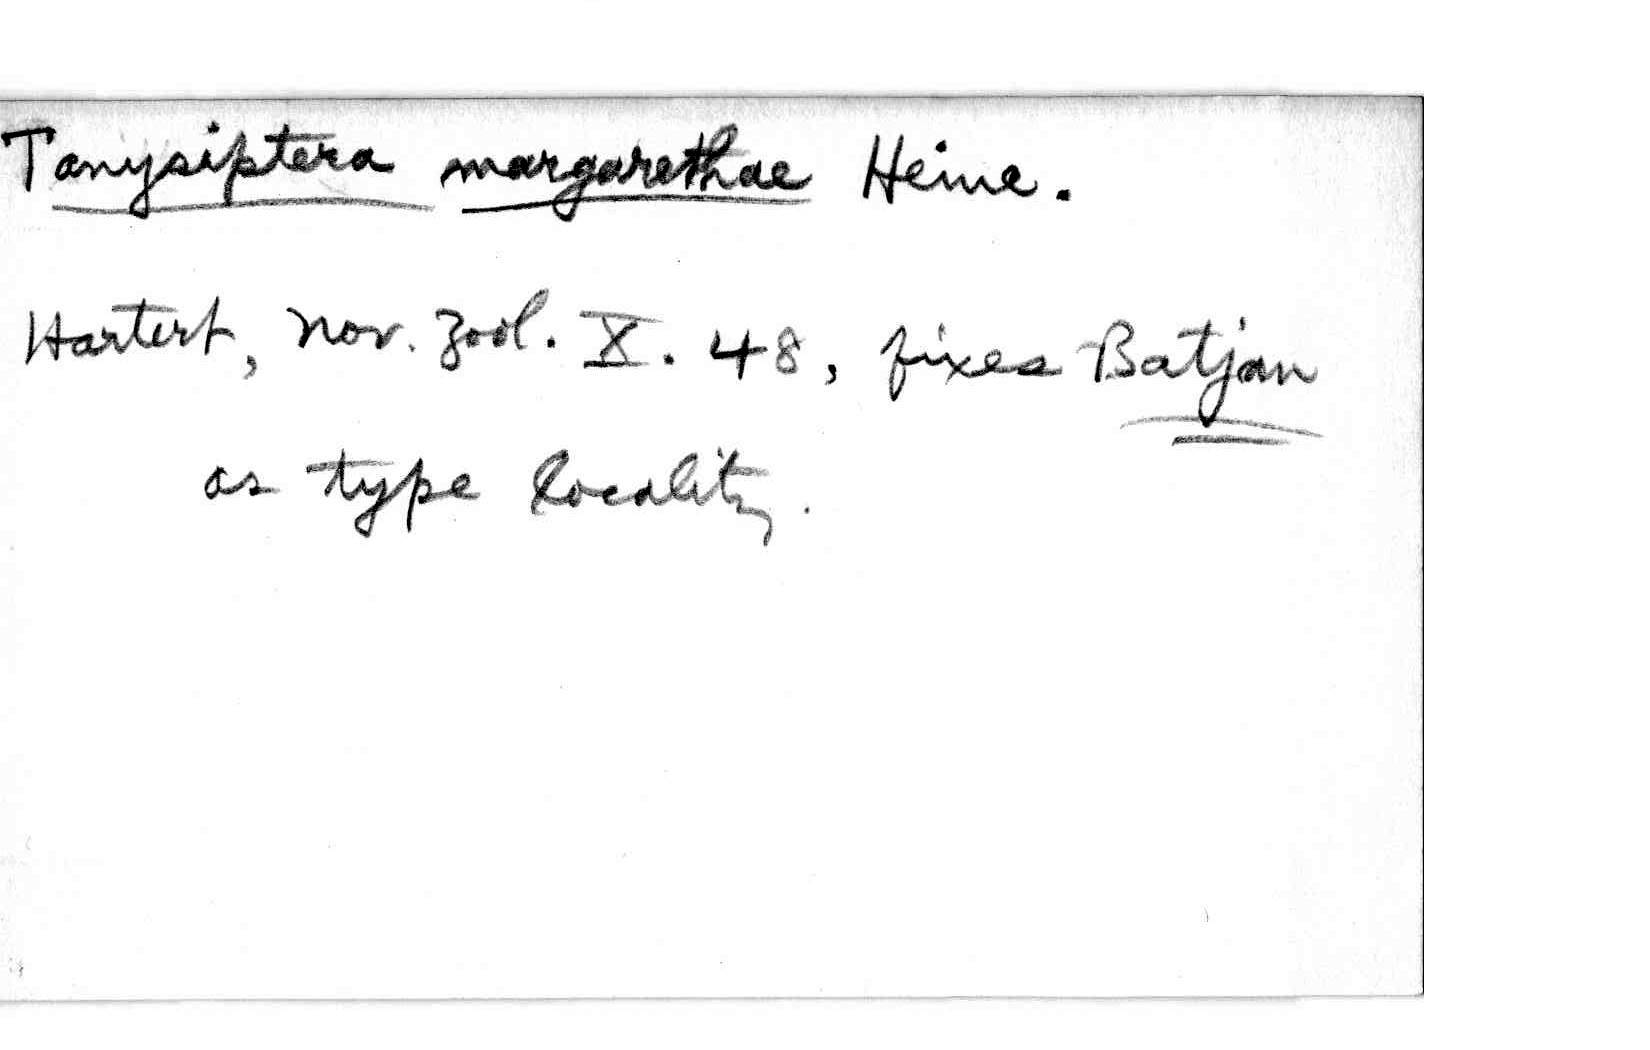 Tanysiptera margarethae Heine.
Hartert, Nov. Zool. X. 48, fixes Batjan
as type locality.